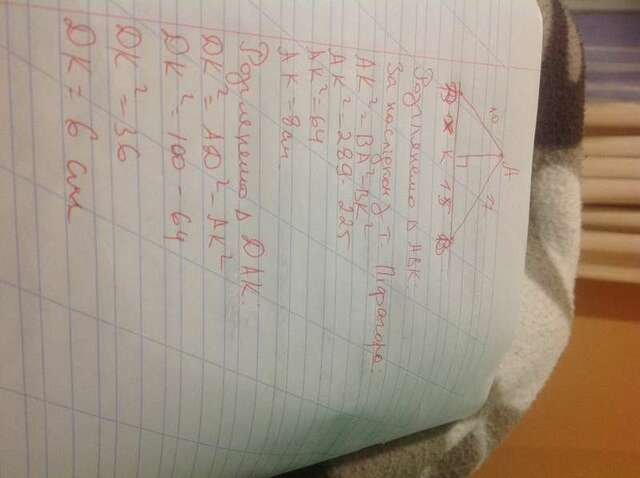 A
10 17
D x K 15 B
Розглянемо Δ ABK:
За наслідком з т. Піфагора:
AK² = BA² - BK²
AK² = 289 - 225
AK² = 64
AK = 8 см
Розглянемо Δ DAK:
DK² = AD² - AK²
DK² = 100 - 64
DK² = 36
DK = 6 см